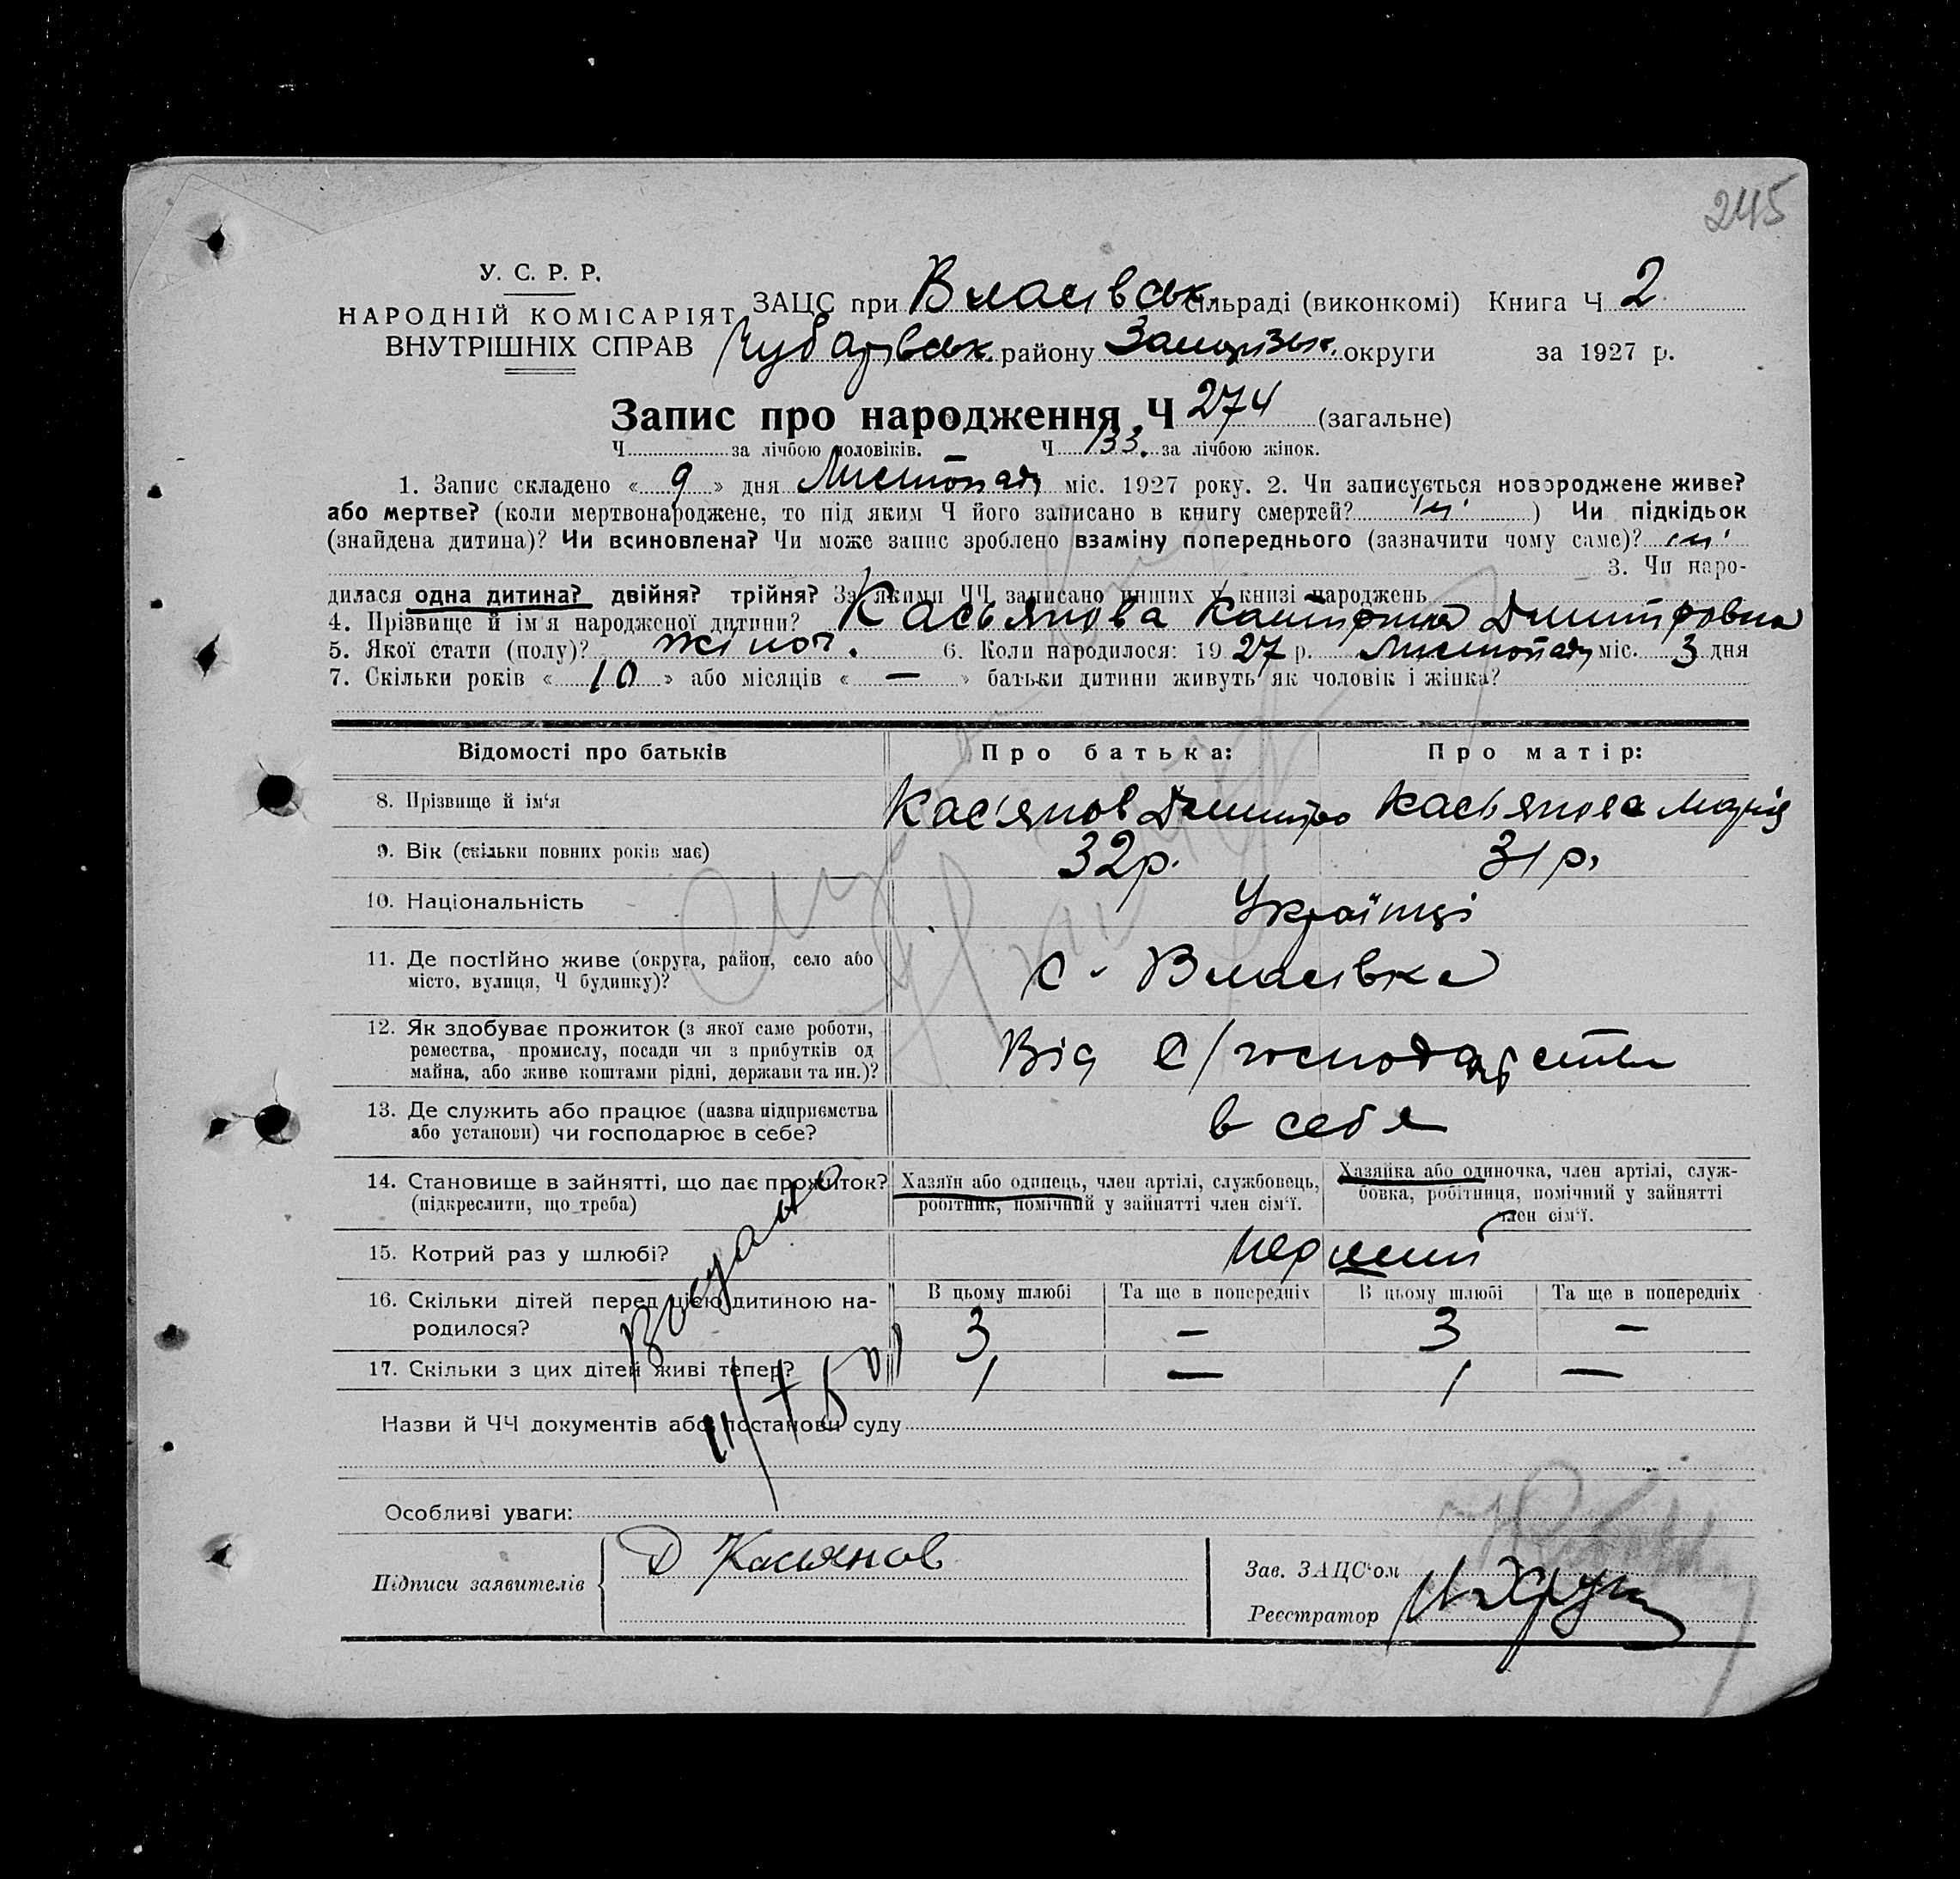 245
У. С. Р. Р.
НАРОДНІЙ КОМІСАРІЯТ
ВНУТРІШНІХ СПРАВ
ЗАЦС при Власівськ. сільраді (виконкомі) Книга Ч 2
Чубарівськ. району Запорізьк. округи за 1927 р.
Запис про народження Ч 274 (загальне)
Ч за лічбою чоловіків. Ч 133. за лічбою жінок.
1. Запис складено « 9 » дня Листопаду міс. 1927 року. 2. Чи записується новороджене живе?
або мертве? (коли мертвонароджене, то під яким Ч його записано в книгу смертей? ) Чи підкідьок
(знайдена дитина)? Чи всиновлена? Чи може запис зроблено взаміну попереднього (зазначити чому саме)?
3. Чи наро-
дилася одна дитина? двійня? трійня? За якими ЧЧ записано инших у книзі народжень
4. Прізвище й ім'я народженої дитини? Касьянова Катерина Дмитровна
5. Якої стати (полу)? жіноч. 6. Коли народилося: 1927 р. Листопаду міс. 3 дня
7. Скільки років « 10 » або місяців « — » батьки дитини живуть як чоловік і жінка?
Відомості про батьків Про батька: Про матір:
8. Прізвище й ім'я Кас'янов Дмитро Касьянова Марія
9. Вік (скільки повних років має) 32 р. 31 р.
10. Національність Українці
11. Де постійно живе (округа, район, село або
місто, вулиця, Ч будинку)? с. Власівка
12. Як здобуває прожиток (з якої саме роботи,
ремества, промислу, посади чи з прибутків од
майна, або живе коштами рідні, держави та ин.)? Від с/господарства
13. Де служить або працює (назва підприємства
або установи) чи господарює в себе? в себе
14. Становище в зайнятті, що дає прожиток?
(підкреслити, що треба)
Хазяїн або одинець, член артілі, службовець,
робітник, помічний у зайнятті член сім'ї.
Хазяйка або одиночка, член артілі, служ-
бовка, робітниця, помічний у зайнятті
член сім'ї.
15. Котрий раз у шлюбі? перший
16. Скільки дітей перед цією дитиною на-
родилося?
В цьому шлюбі Та ще в попередніх В цьому шлюбі Та ще в попередніх
3 — 3 —
17. Скільки з цих дітей живі тепер? 1 — 1 —
Назви й ЧЧ документів або постанови суду
Особливі уваги:
Підписи заявителів Д Касьянов
Зав. ЗАЦС'ом
Реєстратор